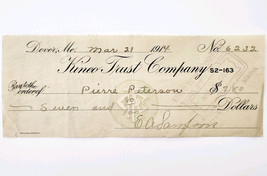 Dover, Me. Mar 21 1914 No. 6232
Kineo Trust Company 52-163
Pay to the order of Pierre Peterson $7.80
Seven and 80/100 Dollars